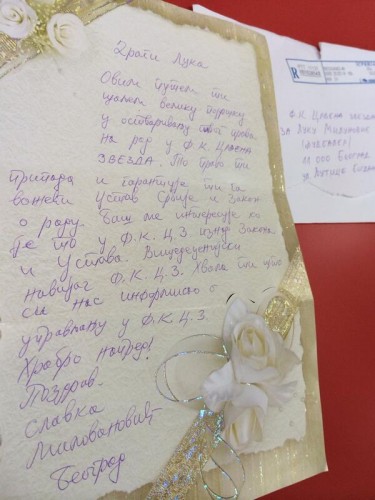 Драги Лука
Овим путем ти
шаљем велику подршку
у остваривању свог права
на рад у Ф.К. Црвена
ЗВЕЗДА. То право ти
припада и гарантује ти га
важећи Устав Србије и Закон
о раду. Баш ме интересује ко
је то у Ф.К.Ц.З. изнад Закона
и Устава. Вишедеценијски
навијач Ф.К.Ц.З. Хвала ти што
си нас информисао о
управљању у Ф.К.Ц.З.
Храбро напред!
Поздрав.
Славка
Миловановић
Београд
R
Ф.К. Црвена звезда
за Луку
11 000 Београд